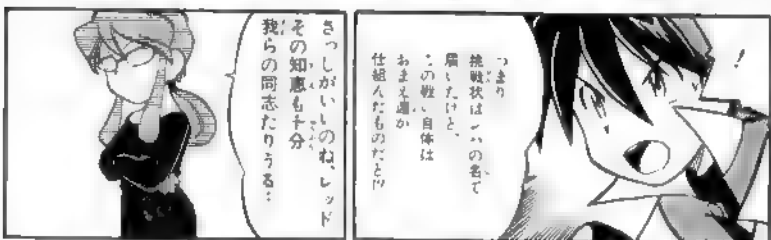 つまり
挑戦状はシバの名で
届いたけど、
この戦い自体は
おまえ達が
仕組んだものだと!?
さっしがいいのね、レッド
その知恵も十分
我らの同志たりうる…